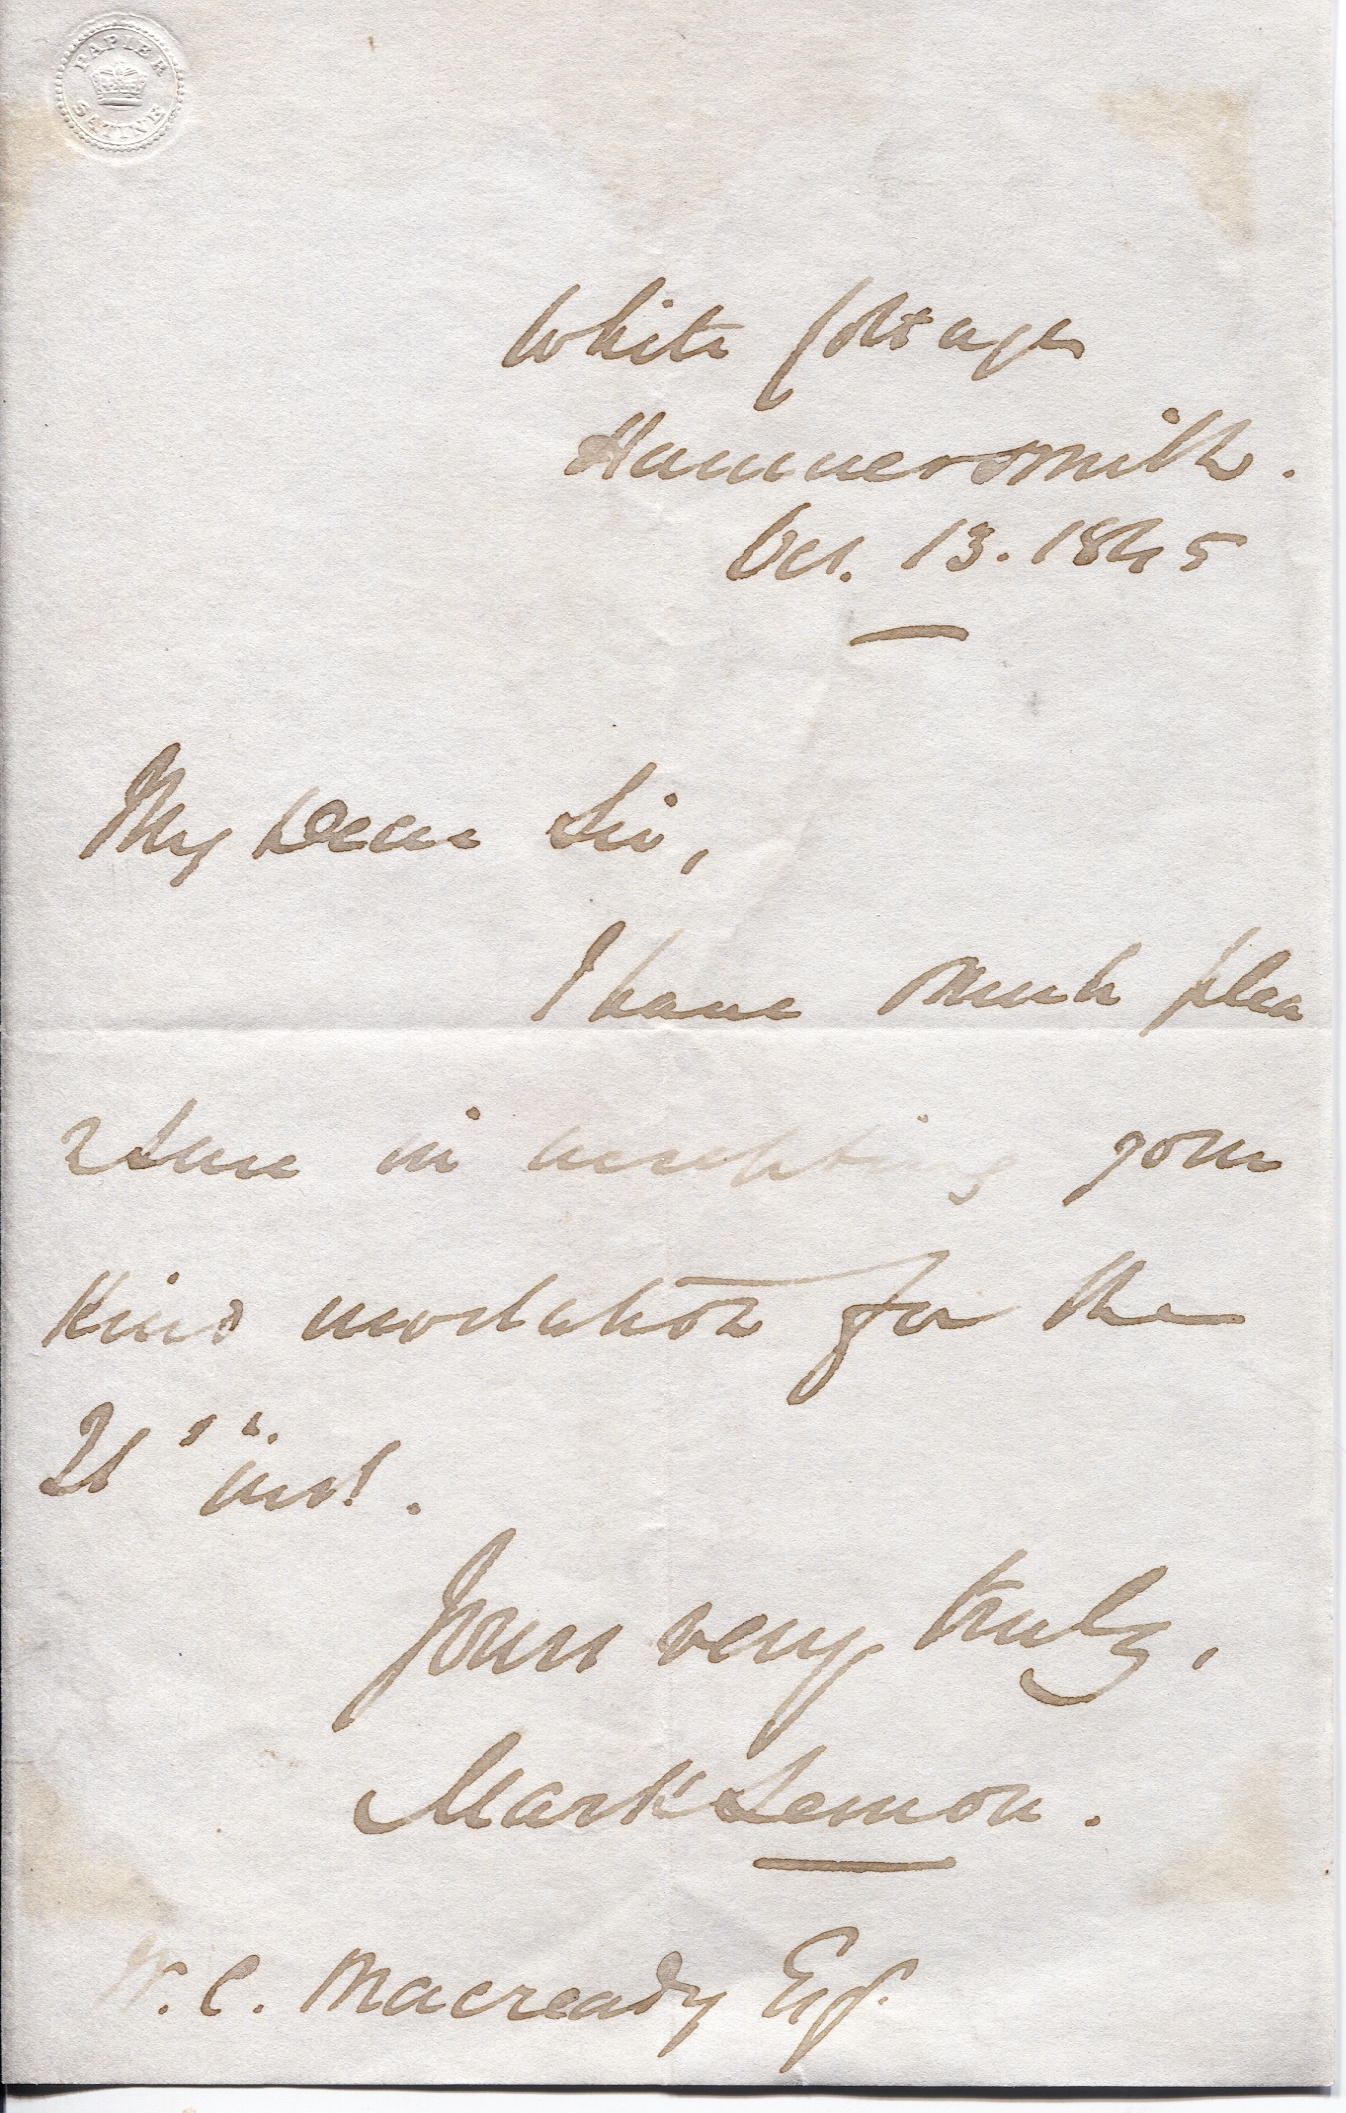 PAPIER
SATINE
White Cottage
Hammersmith.
Oct. 13. 1845
My Dear Sir,
I have much plea
sure in accepting your
Kind invitation for the
21 " inst.
Yours very truly,
Mark Lemon.
W. C. Macready Esq.